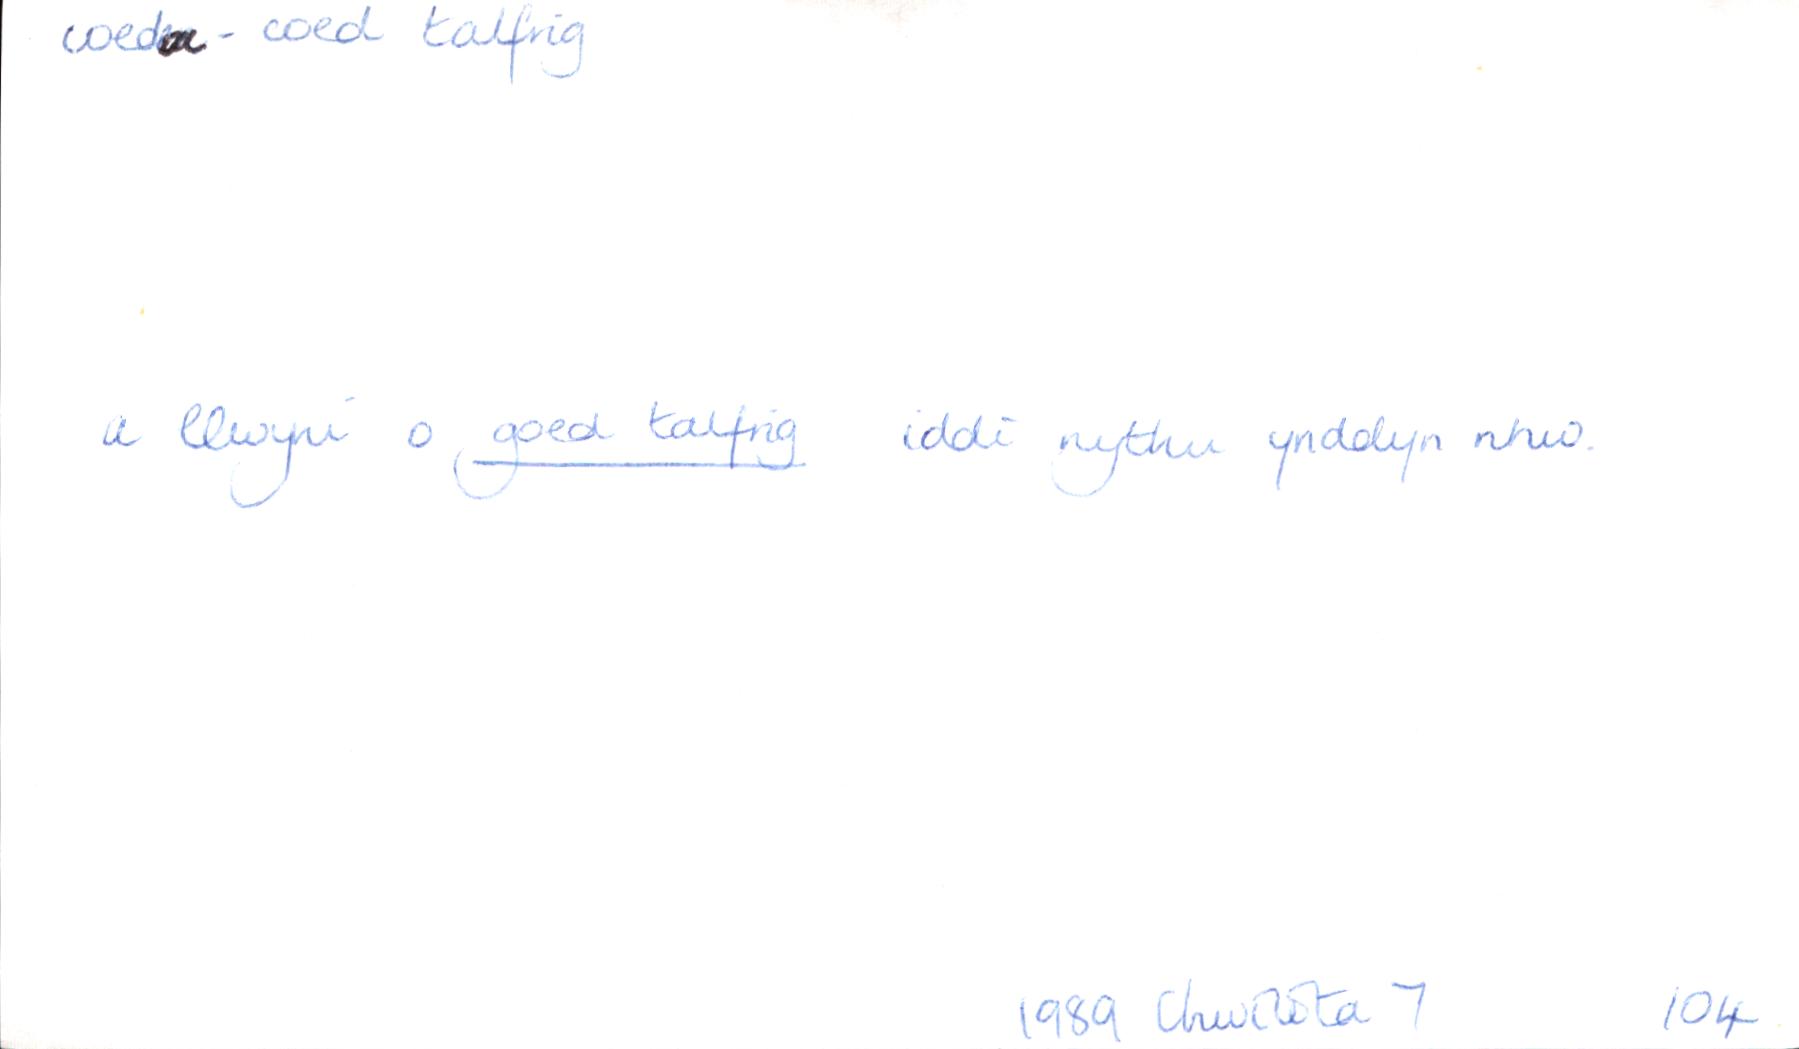 coed - coed talfrig
a llwyni o goed talfrig iddi nythu ynddyn nhw.
1989 Chwilota 7 104